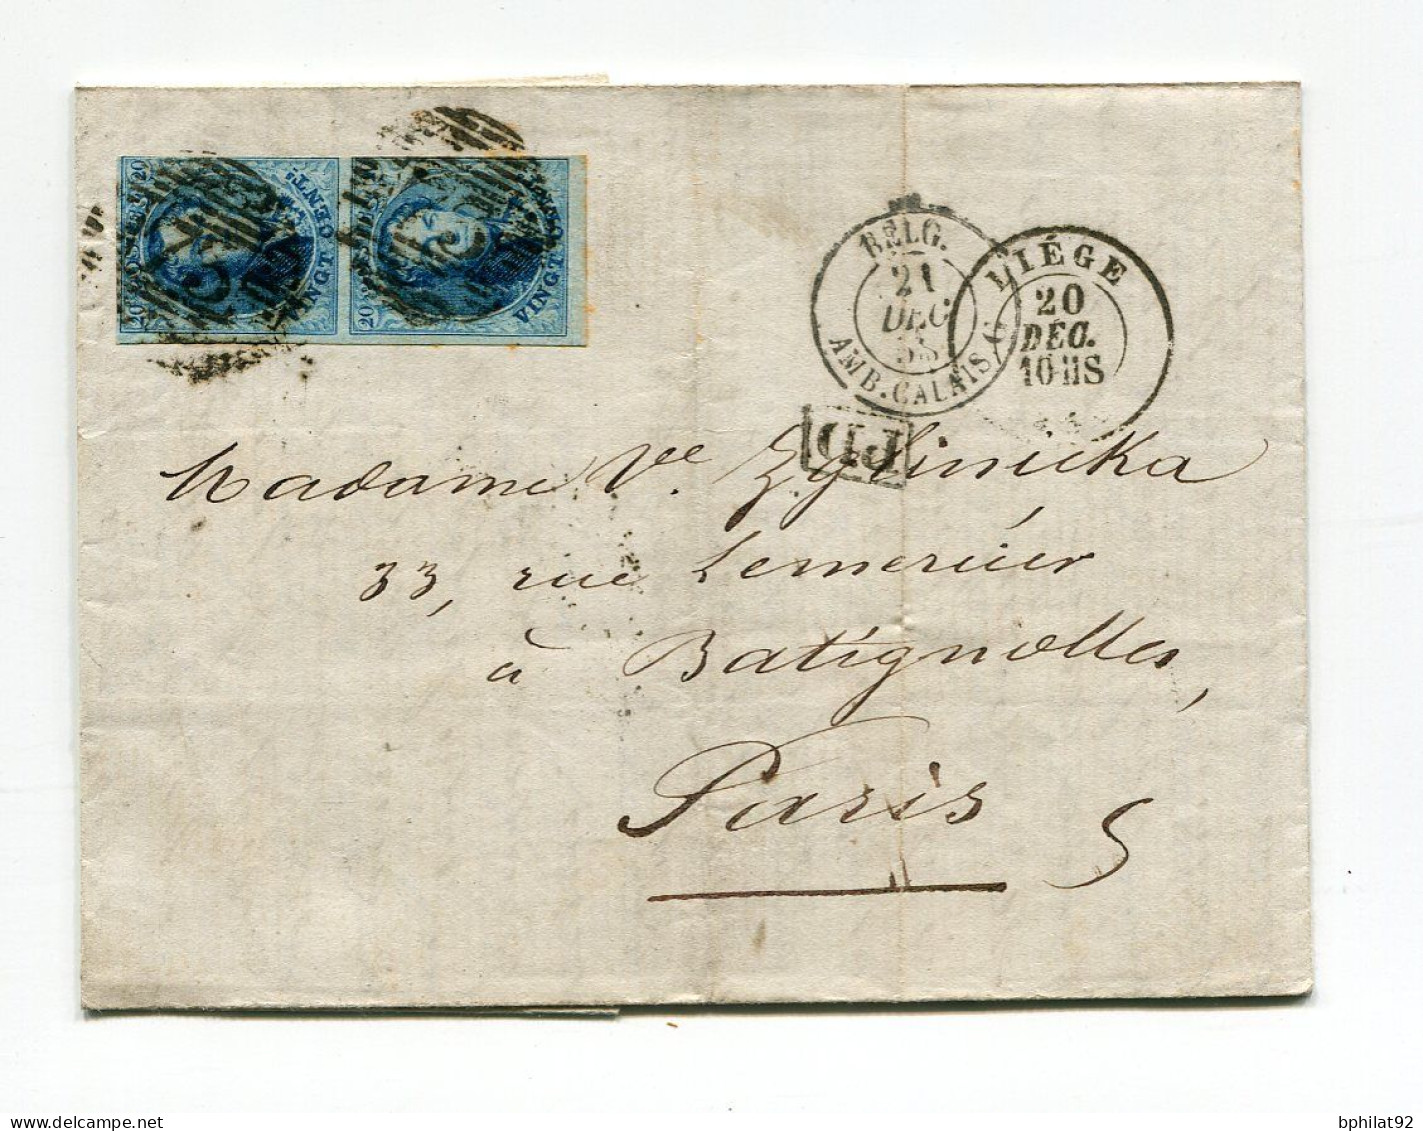 20
20
CENTˢ
VINGT
20
VINGT
BELG.
21
DEC
AMB. CALAIS
LIÉGE
20
DÉC.
10-11S
PD
Madame Vᵉ Zylinicka
33, rue Lemercier
à Batignolles,
Paris
5
delcampe.net
bphilat92